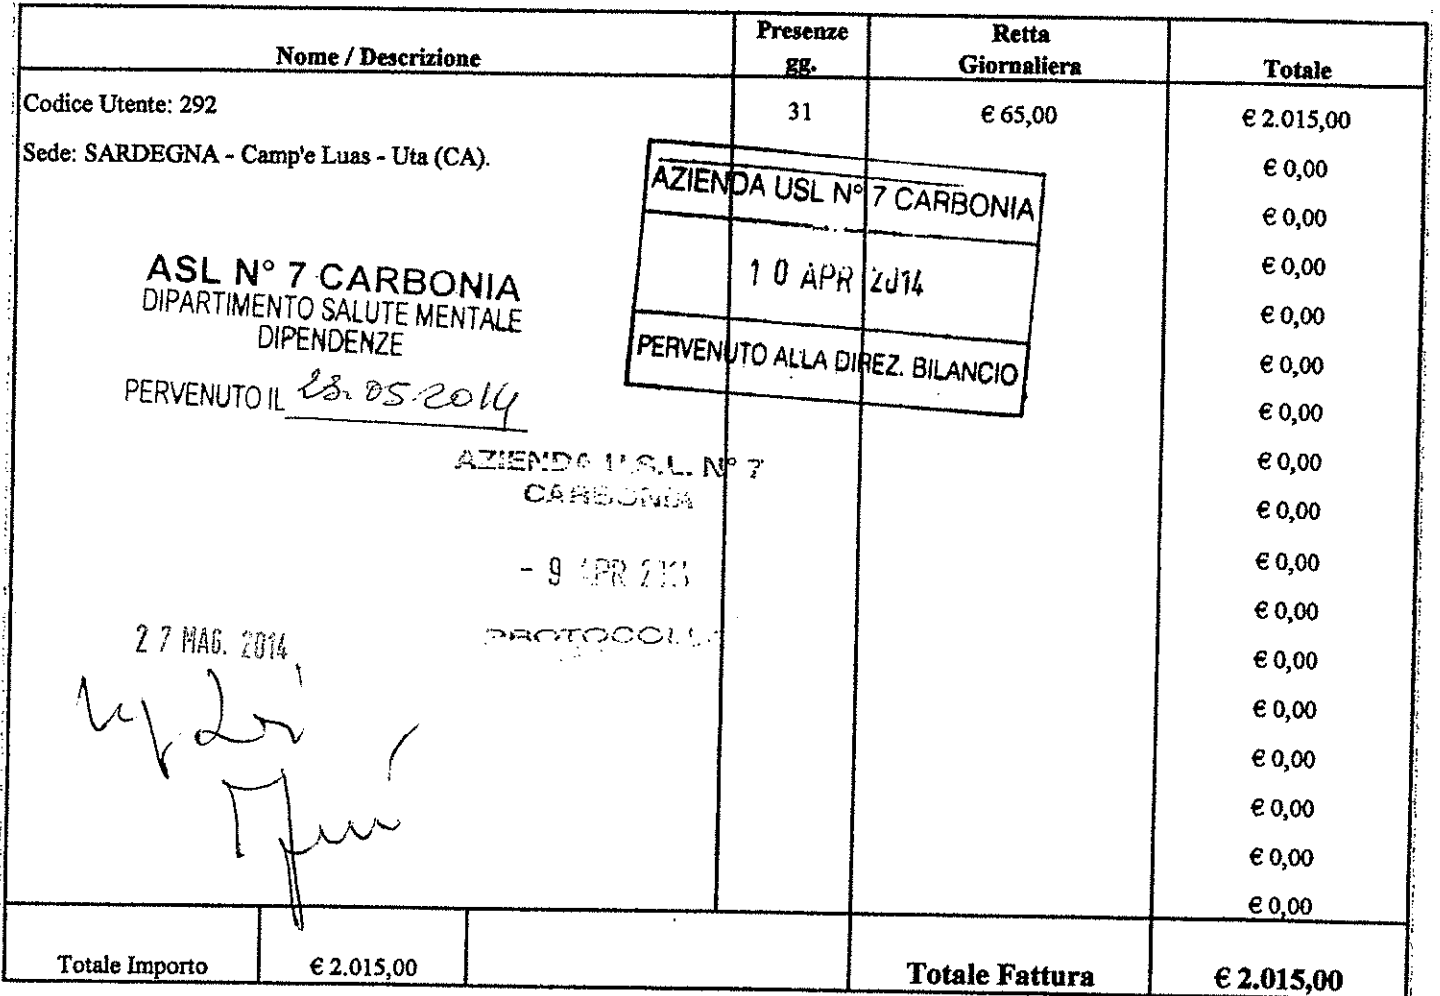 Nome / Descrizione
Presenze
gg.
Retta
Giornaliera
Totale
Codice Utente: 292
31
€ 65,00
€ 2.015,00
Sede: SARDEGNA - Camp'e Luas - Uta (CA).
€ 0,00
€ 0,00
€ 0,00
€ 0,00
€ 0,00
€ 0,00
€ 0,00
€ 0,00
€ 0,00
€ 0,00
€ 0,00
€ 0,00
€ 0,00
€ 0,00
€ 0,00
€ 0,00
AZIENDA USL N° 7 CARBONIA
10 APR 2014
PERVENUTO ALLA DIREZ. BILANCIO
ASL N° 7 CARBONIA
DIPARTIMENTO SALUTE MENTALE
DIPENDENZE
PERVENUTO IL 23.05.2014
AZIENDA U.S.L. N° 7
CARBONIA
- 9 APR
PROTOCOLLO
27 MAG. 2014
Totale Importo
€ 2.015,00
Totale Fattura
€ 2.015,00